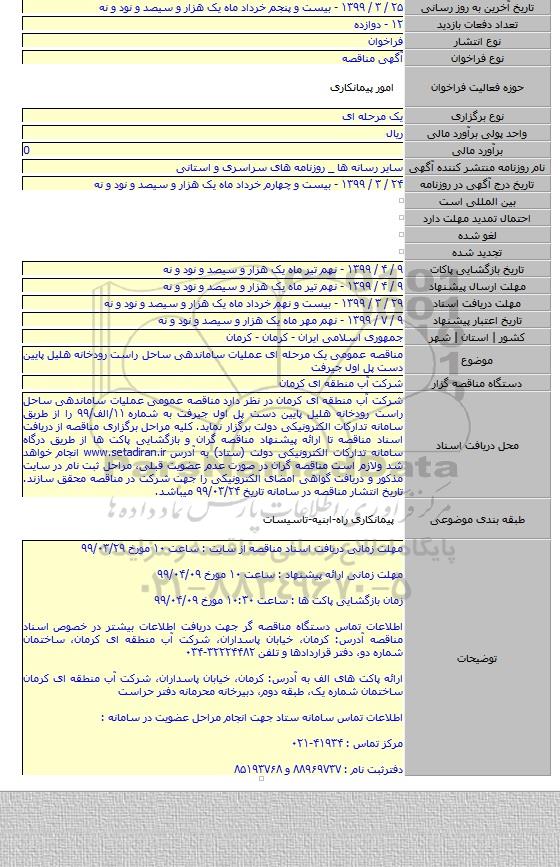 تاریخ آخرین به روز رسانی ۲۵ / ۳ / ۱۳۹۹ - بیست و پنجم خرداد ماه یک هزار و سیصد و نود و نه
تعداد دفعات بازدید ۱۲ - دوازده
نوع انتشار فراخوان
نوع فراخوان آگهی مناقصه
حوزه فعالیت فراخوان امور پیمانکاری
نوع برگزاری یک مرحله ای
واحد پولی برآورد مالی ریال
برآورد مالی 0
نام روزنامه منتشر کننده آگهی سایر رسانه ها _ روزنامه های سراسری و استانی
تاریخ درج آگهی در روزنامه ۲۴ / ۳ / ۱۳۹۹ - بیست و چهارم خرداد ماه یک هزار و سیصد و نود و نه
بین المللی است
احتمال تمدید مهلت دارد
لغو شده
تجدید شده
تاریخ بازگشایی پاکات ۹ / ۴ / ۱۳۹۹ - نهم تیر ماه یک هزار و سیصد و نود و نه
مهلت ارسال پیشنهاد ۹ / ۴ / ۱۳۹۹ - نهم تیر ماه یک هزار و سیصد و نود و نه
مهلت دریافت اسناد ۲۹ / ۳ / ۱۳۹۹ - بیست و نهم خرداد ماه یک هزار و سیصد و نود و نه
تاریخ اعتبار پیشنهاد ۹ / ۷ / ۱۳۹۹ - نهم مهر ماه یک هزار و سیصد و نود و نه
کشور | استان | شهر جمهوری اسلامی ایران - کرمان - کرمان
موضوع مناقصه عمومی یک مرحله ای عملیات ساماندهی ساحل راست رودخانه هلیل پایین
دست پل اول جیرفت
دستگاه مناقصه گزار شرکت آب منطقه ای کرمان
محل دریافت اسناد
شرکت آب منطقه ای کرمان در نظر دارد مناقصه عمومی عملیات ساماندهی ساحل
راست رودخانه هلیل پایین دست پل اول جیرفت به شماره ۱۱/الف/۹۹ را از طریق
سامانه تدارکات الکترونیکی دولت برگزار نماید. کلیه مراحل برگزاری مناقصه از دریافت
اسناد مناقصه تا ارائه پیشنهاد مناقصه گران و بازگشایی پاکت ها از طریق درگاه
سامانه تدارکات الکترونیکی دولت (ستاد) به آدرس www.setadiran.ir انجام خواهد
شد ولازم است مناقصه گران در صورت عدم عضویت قبلی، مراحل ثبت نام در سایت
مذکور و دریافت گواهی امضای الکترونیکی را جهت شرکت در مناقصه محقق سازند.
تاریخ انتشار مناقصه در سامانه تاریخ ۹۹/۰۳/۲۴ میباشد.
طبقه بندی موضوعی پیمانکاری راه-ابنیه-تاسیسات
توضیحات
مهلت زمانی دریافت اسناد مناقصه از سایت : ساعت ۱۰ مورخ ۹۹/۰۳/۲۹
مهلت زمانی ارائه پیشنهاد : ساعت ۱۰ مورخ ۹۹/۰۴/۰۹
زمان بازگشایی پاکت ها : ساعت ۱۰:۳۰ مورخ ۹۹/۰۴/۰۹
اطلاعات تماس دستگاه مناقصه گر جهت دریافت اطلاعات بیشتر در خصوص اسناد
مناقصه آدرس: کرمان، خیابان پاسداران، شرکت آب منطقه ای کرمان، ساختمان
شماره دو، دفتر قراردادها و تلفن ۳۲۲۲۴۴۸۲-۰۳۴
ارائه پاکت های الف به آدرس: کرمان، خیابان پاسداران، شرکت آب منطقه ای کرمان
ساختمان شماره یک، طبقه دوم، دبیرخانه محرمانه دفتر حراست
اطلاعات تماس سامانه ستاد جهت انجام مراحل عضویت در سامانه :
مرکز تماس : ۴۱۹۳۴-۰۲۱
دفترثبت نام : ۸۸۹۶۹۷۳۷ و ۸۵۱۹۳۷۶۸